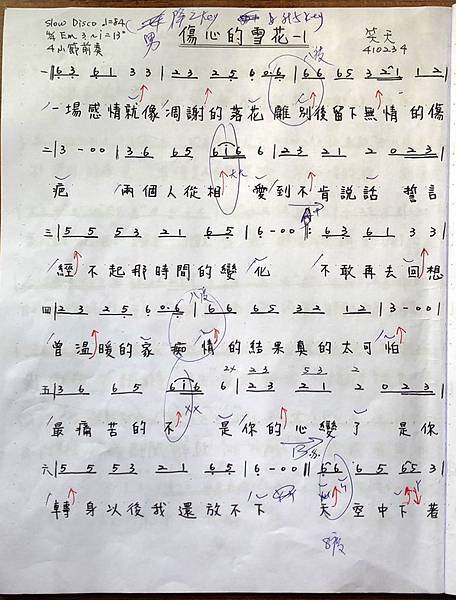 Slow Disco ♩=84
降2key
男
傷心的雪花-1
笑天
4小節前奏
410234
八度
一|63 61 3 3|23 25 60·6|66 65 32·1 12|
一場感情就像凋謝的落花離別後留下無情的傷
二|3-00|36 65 616 6|23 21 2 023|
疤 兩個人從相愛到不肯説話 誓言
三|55 53 21 65|6-00‖:63 61 3 3|
經不起那時間的變化 不敢再去回想
八度
四|23 25 60·6|66 65 32 12|3-00|
曾溫暖的家痴情的結果真的太可怕
五|36 65 616 6|23 21 2 023|
最痛苦的不是你的心變了 是你
六|55 53 21 65|6-00‖66 65 65 3|
轉身以後我還放不下 天空中下著
8度